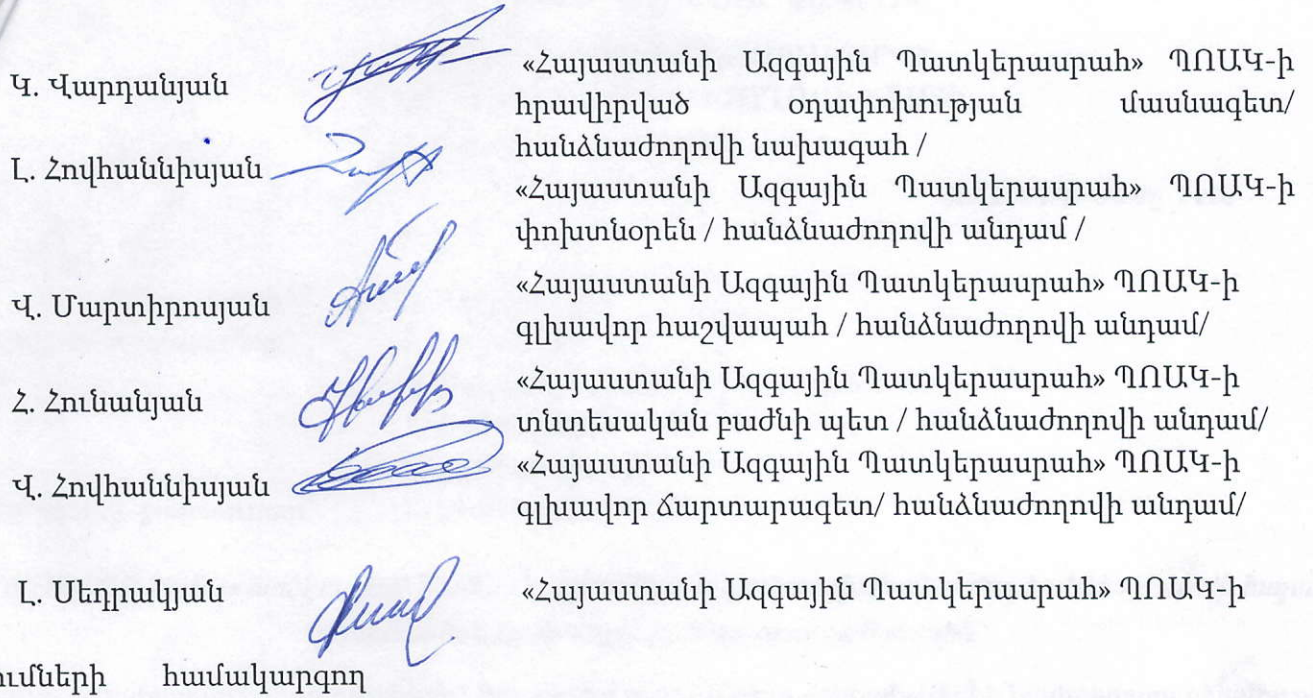 Կ. Վարդանյան
«Հայաստանի Ազգային Պատկերասրահ» ՊՈԱԿ-ի
հրավիրված օդափոխության մասնագետ/
հանձնաժողովի նախագահ /
Լ. Հովհաննիսյան
«Հայաստանի Ազգային Պատկերասրահ» ՊՈԱԿ-ի
փոխտնօրեն / հանձնաժողովի անդամ /
Վ. Մարտիրոսյան
«Հայաստանի Ազգային Պատկերասրահ» ՊՈԱԿ-ի
գլխավոր հաշվապահ / հանձնաժողովի անդամ/
Հ. Հունանյան
«Հայաստանի Ազգային Պատկերասրահ» ՊՈԱԿ-ի
տնտեսական բաժնի պետ / հանձնաժողովի անդամ/
Վ. Հովհաննիսյան
«Հայաստանի Ազգային Պատկերասրահ» ՊՈԱԿ-ի
գլխավոր ճարտարագետ/ հանձնաժողովի անդամ/
Լ. Սեդրակյան
«Հայաստանի Ազգային Պատկերասրահ» ՊՈԱԿ-ի
ումների համակարգող